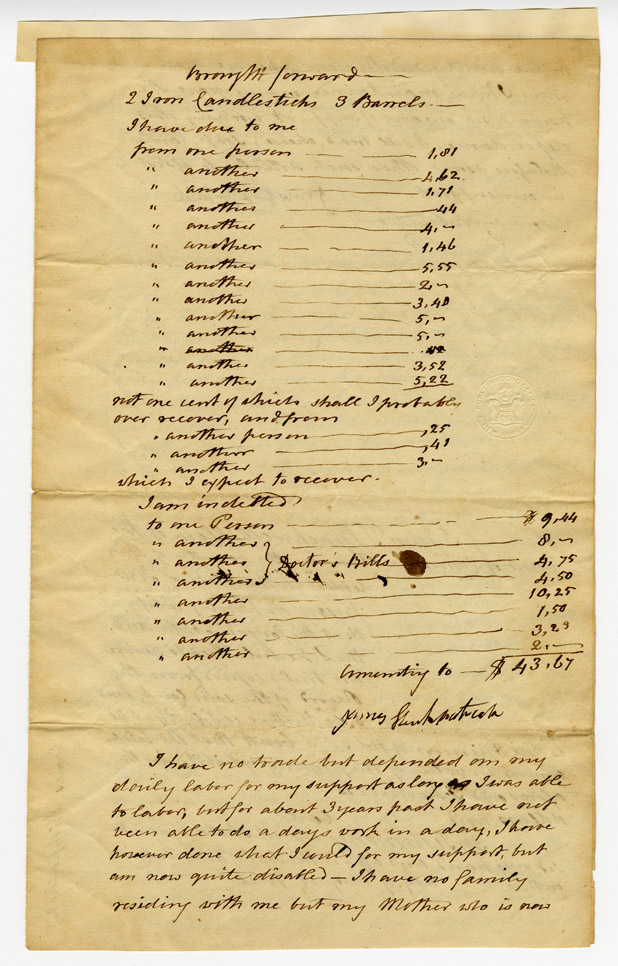 Brought forward —
2 Iron Candlesticks 3 Barrels. —
I have due to me
from one person — 1,81
" another — 4,62
" another — 1,71
" another — 44
" another — 4,~
" another — 1,46
" another — 5,55
" another — 2,~
" another — 3,48
" another — 5,~
" another — 5,~
" another —
" another — 3,52
" another — 5,22
not one cent of which shall I probably
ever recover, and from
" another person — ,25
" another — ,41
" another — 3,~
which I expect to recover.
I am indebted
to one Person — $ 9,44
" another — 8,~
" another } Doctor's Bills — 4,75
" another " " — 4,50
" another — 10,25
" another — 1,50
" another — 3,23
" another — 2,~
amounting to — $ 43,67
James
I have no trade but depended on my
daily labor for my support as long as I was able
to labor, but for about 3 years past I have not
been able to do a days work in a day, I have
however done what I could for my support, but
am now quite disabled — I have no family
residing with me but my Mother who is now